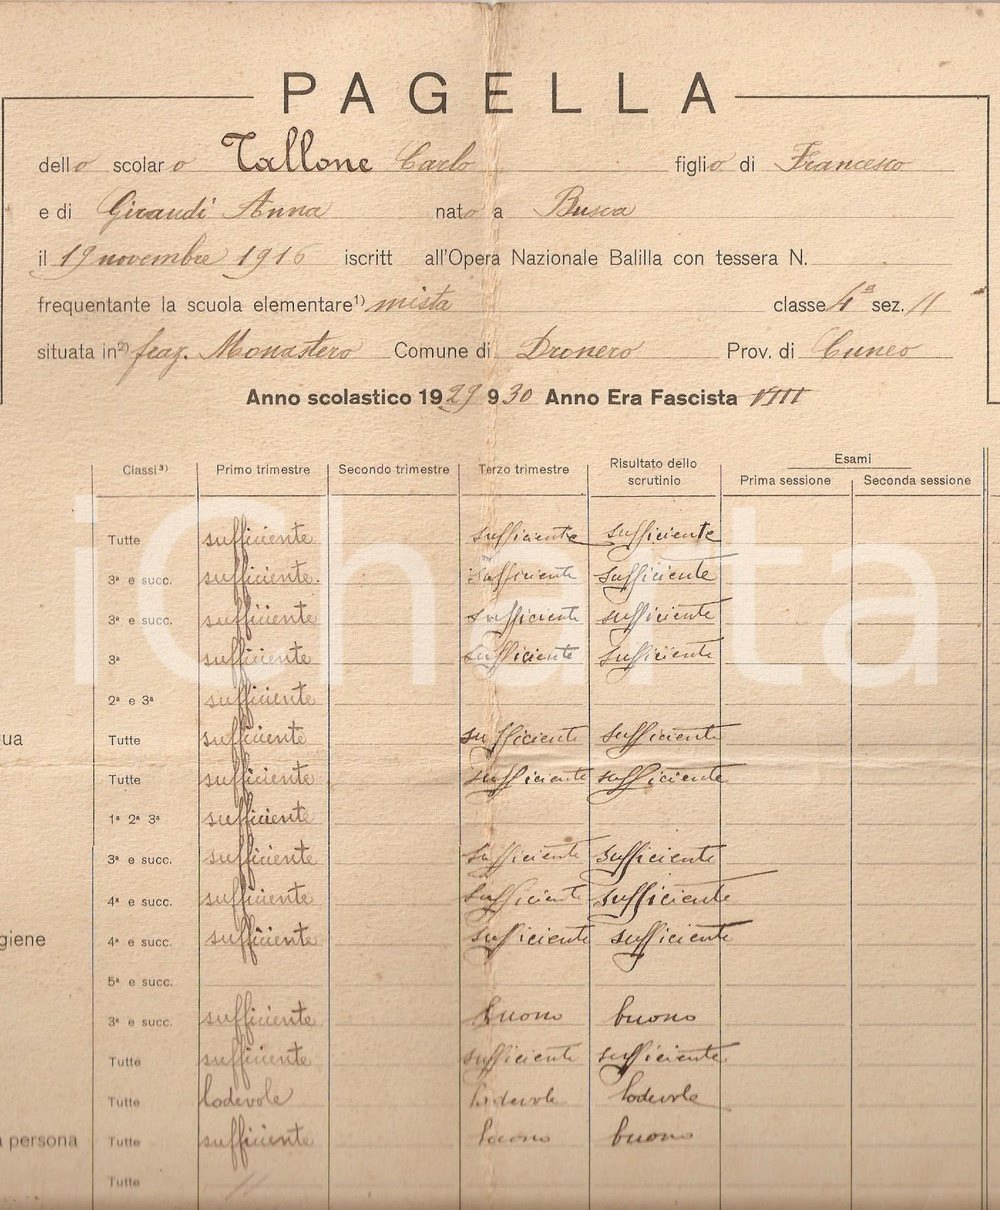 PAGELLA
dello scolaro Tallone Carlo figlio di Francesco
e di Giraudi Anna nato a Busca
il 19 novembre 1916 iscritt all'Opera Nazionale Balilla con tessera N.
frequentante la scuola elementare1) mista classe 4a sez. //
situata in2) fraz. Monastero Comune di Dronero Prov. di Cuneo
Anno scolastico 1929 930 Anno Era Fascista VIII
Classi3) Primo trimestre Secondo trimestre Terzo trimestre Risultato dello scrutinio Esami Prima sessione Seconda sessione
Tutte sufficiente sufficiente sufficiente
3a e succ. sufficiente sufficiente sufficiente
3a e succ. sufficiente sufficiente sufficiente
3a sufficiente sufficiente sufficiente
2a e 3a sufficiente
ua Tutte sufficiente sufficiente sufficiente
Tutte sufficiente sufficiente sufficiente
1a 2a 3a sufficiente
3a e succ. sufficiente sufficiente sufficiente
4a e succ. sufficiente sufficiente sufficiente
giene 4a e succ. sufficiente sufficiente sufficiente
5a e succ.
3a e succ. sufficiente buono buono
Tutte sufficiente sufficiente sufficiente
Tutte lodevole lodevole lodevole
a persona Tutte sufficiente buono buono
Tutte //
iCharta